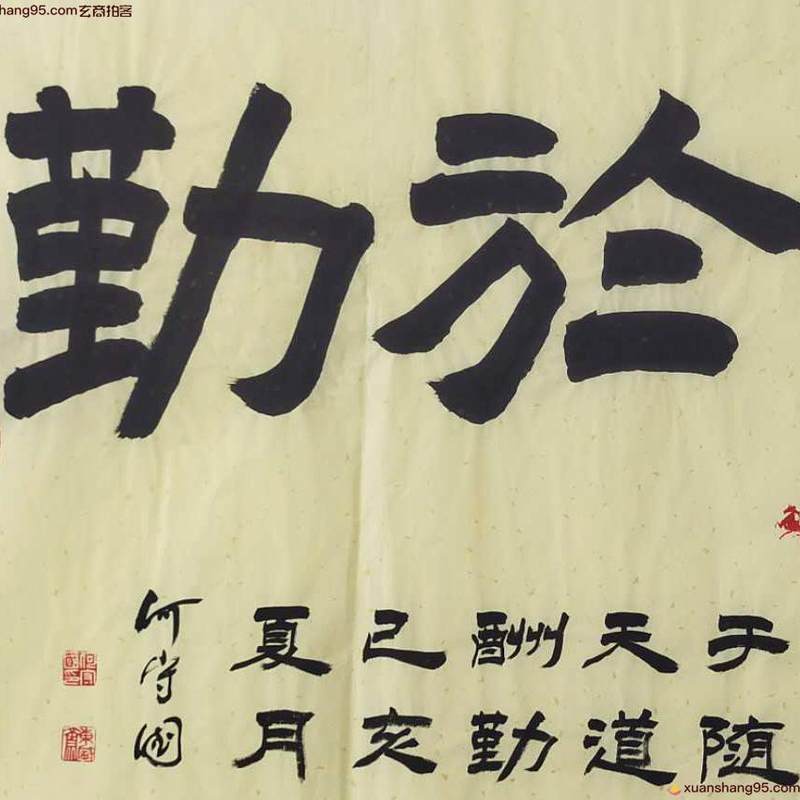 hang95.com玄商拍客
於勤
于随
天道
酬勤
己亥
夏月
何守國
xuanshang95.com